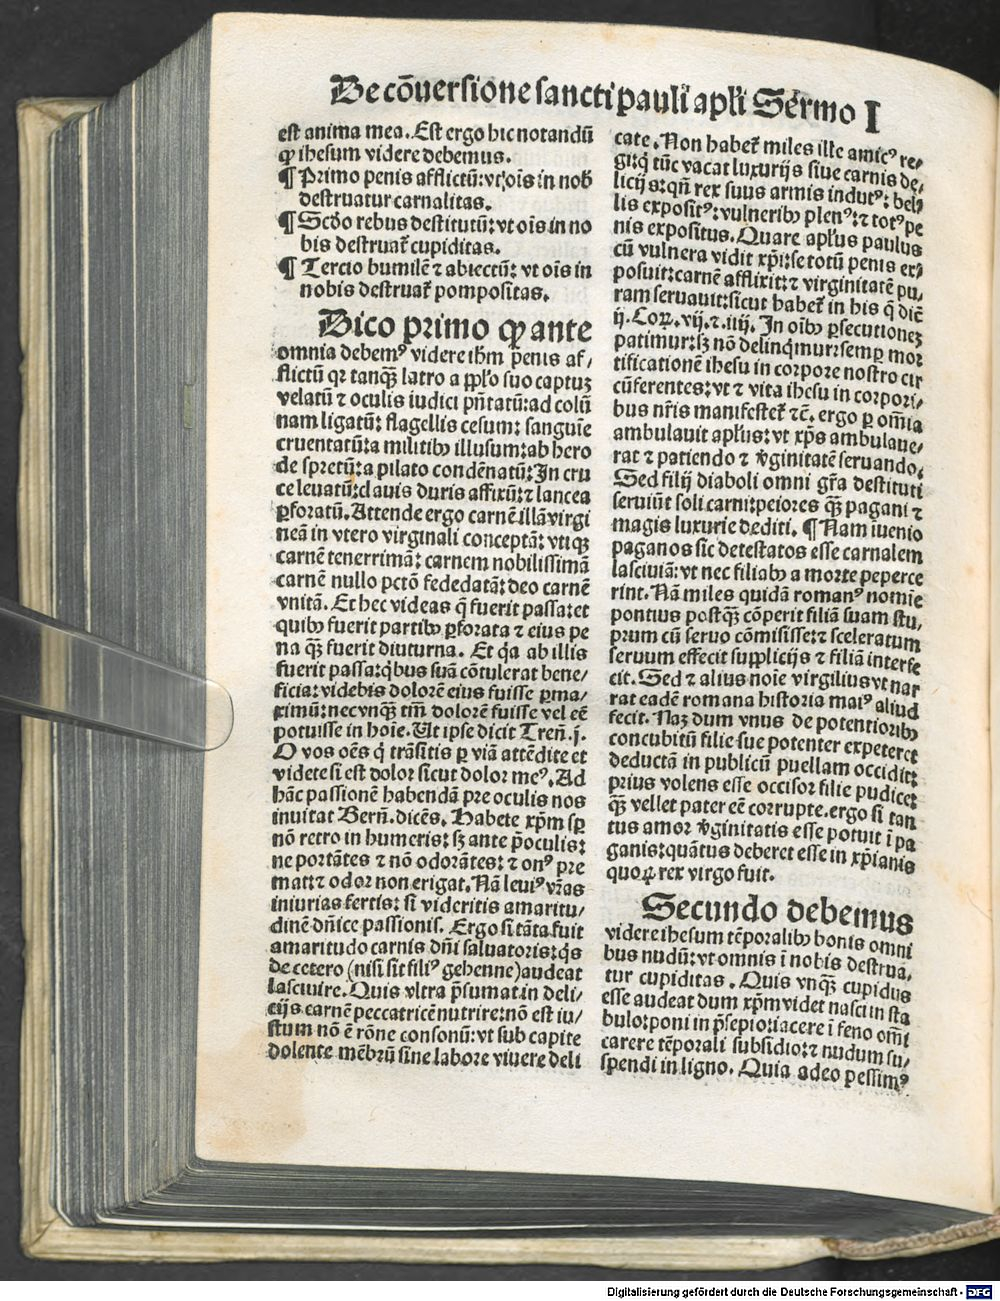 De cōuersione sancti pauli apl̓i Sermo I
est anima mea. Est ergo hic notandū
ꝙ ihesum videre debemus.
¶ Primo penis afflictū: vt oīs in nob̓
destruatur carnalitas.
¶ Scd̓o rebus destitutū: vt oīs in no
bis destruat̄ cupiditas.
¶ Tercio humilē ⁊ abiectū: vt oīs in
nobis destruat̄ pompositas.
Dico primo ꝙ ante
omnia debemꝰ videre ihm̄ penis af⸗
flictū qꝛ tanqꝫ latro a ppl̓o suo captuꝫ
velatū ⁊ oculis iudici pn̄tatū: ad colū
nam ligatū: flagellis cesum: sanguīe
cruentatū: a militibꝰ illusum: ab hero
de spretū: a pilato condēnatū: In cru
ce leuatū: clauis duris affixū: ⁊ lancea
ꝑforatū. Attende ergo carnē illā virgi
neā in vtero virginali conceptā: vtiqꝫ
carnē tenerrimā: carnem nobilissimā
carnē nullo pctō fededatā: deo carnē
vnitā. Et hec videas q̄ fuerit passa: et
quibꝰ fuerit partibꝰ ꝑforata ⁊ eius pe
na qꝫ fuerit diuturna. Et q̓a ab illis
fuerit passa: q̓bus suā cōtulerat bene⸗
ficia: videbis dolorē eius fuisse ꝑma⸗
ximū: nec vnqꝫ tm̄ dolorē fuisse vel eē
potuisse in hoīe. Ut ipse dicit Tren̄. j.
O vos oēs q̓ trāsitis ꝑ viā attēdite et
videte si est dolor sicut dolor meꝰ. Ad
hāc passionē habendā pre oculis nos
inuitat Bern̄. dicēs. Habete xp̄m sp̄
nō retro in humeris: sꝫ ante p̄oculis:
ne portātes ⁊ nō odorātes: ⁊ onꝰ pre
mat: ⁊ odor non erigat. Nā leuiꝰ vr̄as
iniurias fertis: si videritis amaritu⸗
dinē dn̄ice passionis. Ergo si tāta fuit
amaritudo carnis dn̄i saluatoris: q̓s
de cetero (nisi sit filiꝰ gehenne) audeat
lasciuire. Quis vltra p̄sumat in deli⸗
cijs carnē peccatricē nutrire: nō est iu⸗
stum nō ē rōne consonū: vt sub capite
dolente mēbrū sine labore viuere deli
cate. Non habet̄ miles ille amicꝰ re⸗
gi: q̓ tūc vacat luxurijs siue carnis de⸗
licijs: qn̄ rex suus armis indutꝰ: bel⸗
lis expositꝰ: vulneribꝰ plenꝰ: ⁊ totꝰ pe
nis expositus. Quare apl̓us paulus
cū vulnera vidit xp̄i: se totū penis ex⸗
posuit: carnē afflixit: ⁊ virginitatē pu⸗
ram seruauit: sicut habet̄ in his q̄ dic̄
ij. Coꝝ. vij. ⁊. iiij. In oībꝰ ꝑsecutioneꝫ
patimur: sꝫ nō delinq̓mur: semꝑ mor
tificationē ihesu in corpore nostro cir
cūferentes: vt ⁊ vita ihesu in corpori⸗
bus nr̄is manifestet̄ ⁊c̄. ergo ꝑ om̄ia
ambulauit apl̓us: vt xp̄s ambulaue⸗
rat ⁊ patiendo ⁊ v̓ginitatē seruando.
Sed filij diaboli omni gr̄a destituti
seruiūt soli carni: peiores qꝫ pagani ⁊
magis luxurie dediti. ¶ Nam iuenio
paganos sic detestatos esse carnalem
lasciuiā: vt nec filiabꝰ a morte peperce
rint. Nā miles quidā romanꝰ nomīe
pontius postqꝫ cōperit filiā suam stu⸗
prum cū seruo cōmisisse: ⁊ sceleratum
seruum effecit supplicijs ⁊ filiā interfe
cit. Sed ⁊ alius noīe virgilius vt nar
rat eadē romana historia maiꝰ aliud
fecit. Naꝫ dum vnus de potentioribꝰ
concubitū filie sue potenter expeteret
deductā in publicū puellam occidit:
prius volens esse occisor filie pudice:
qꝫ vellet pater eē corrupte. ergo si tan
tus amor v̓ginitatis esse potuit ī pa
ganis: quātus deberet esse in xp̄ianis
quoꝝ rex virgo fuit.
Secundo debemus
videre ihesum tēporalibꝰ bonis omni
bus nudū: vt omnis ī nobis destrua⸗
tur cupiditas. Quis vnqꝫ cupidus
esse audeat dum xp̄m videt nasci in sta
bulo: poni in p̄sepio: iacere ī feno om̄i
carere tēporali subsidio: ⁊ nudum su⸗
spendi in ligno. Quia adeo pessimꝰ
Digitalisierung gefördert durch die Deutsche Forschungsgemeinschaft - DFG